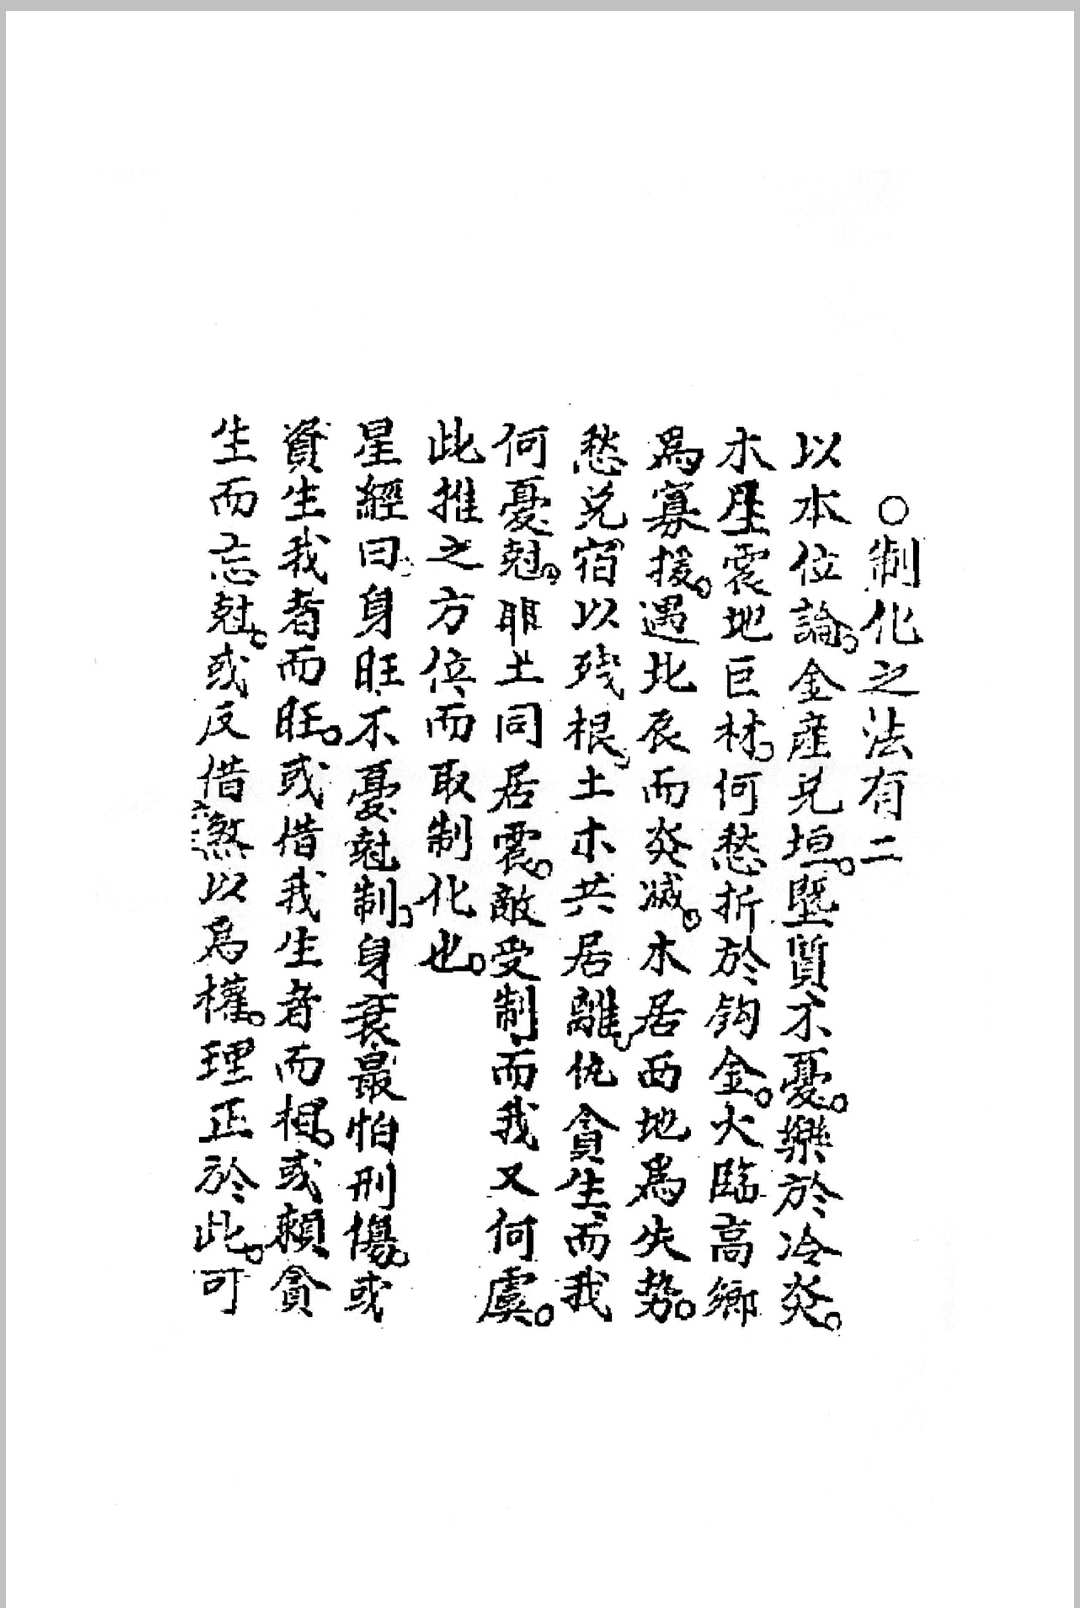 ○制化之法有二
以本位論。金産兑垣。墍質不憂。樂於冷炎。
木星震地巨材。何愁折於鈎金。火臨高鄉
爲寡援。遇北辰而炎減。木居西地爲失势。
愁兑宿以残根。土木共居離。仇貪生而我
何憂尅。耶土同居震。敵受制而我又何虞。
此推之方位而取制化也。
星經曰。身旺不憂尅制。身衰最怕刑傷。或
資生我者而旺。或借我生者而相。或賴貪
生而忘尅。或反借煞以爲權。理正於此。可